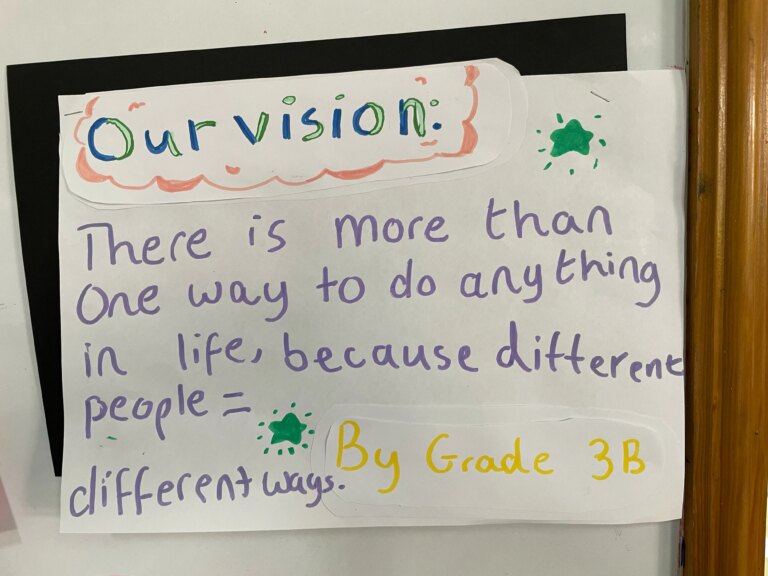 Our vision:
There is more than
one way to do anything
in life, because different
people =
different ways.
By Grade 3B